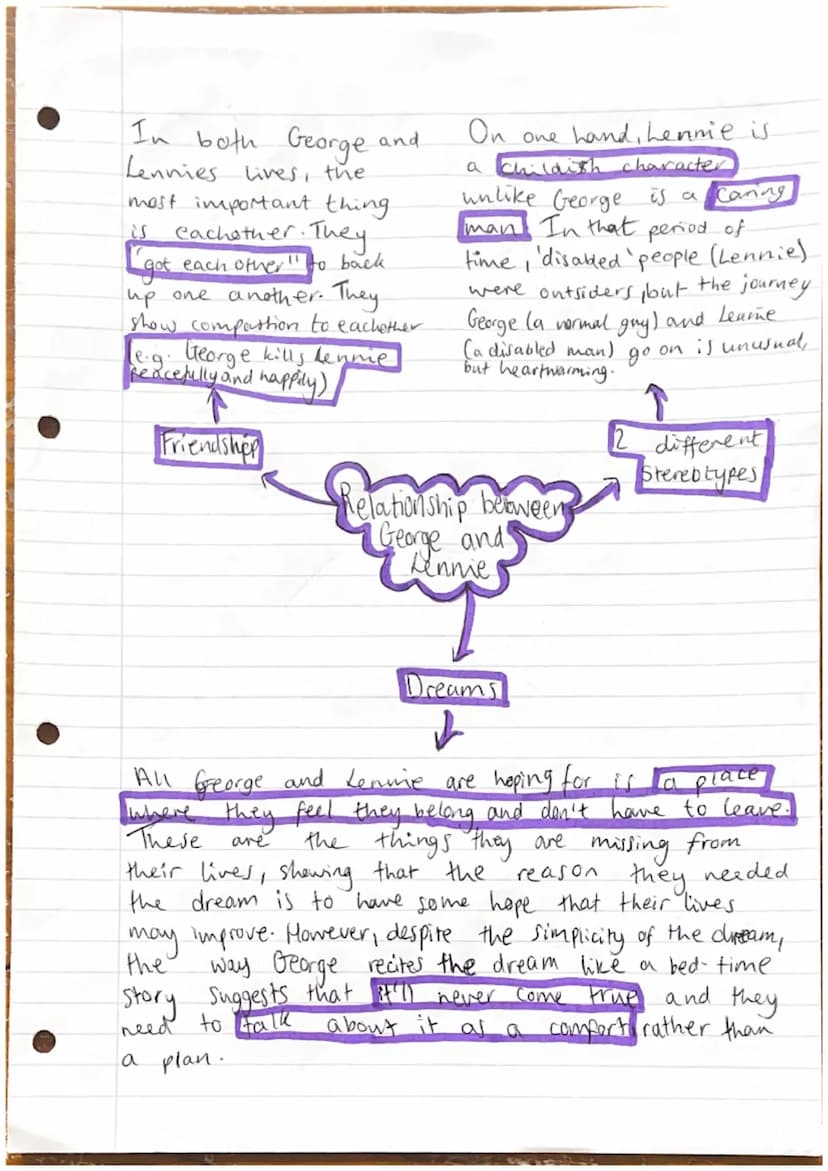 In both George and
Lennies lives, the
most important thing
is eachother. They
"got each other" to back
up one another. They
show compastion to eachother
(e.g. George kills Lennie
peacefully and happily)
On one hand, Lennie is
a childish character
unlike George is a caring
man. In that period of
time, 'disabled' people (Lennie)
were outsiders, but the journey
George (a normal guy) and Lennie
(a disabled man) go on is unusual,
but heartwarming.
Friendship
2 different
Stereotypes
Relationship between
George and
Lennie
Dreams
All George and Lennie are hoping for is a place
where they feel they belong and don't have to leave.
These are the things they are missing from
their lives, showing that the reason they needed
the dream is to have some hope that their lives
may improve. However, despite the simplicity of the dream,
the way George recites the dream like a bed-time
story suggests that it'll never come true and they
need to talk about it as a comfort rather than
a plan.